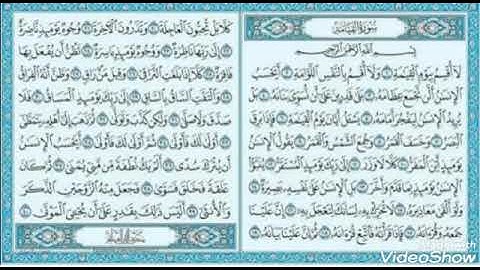 سُورَةُ القِيَامَةِ
بِسْمِ اللَّهِ الرَّحْمَٰنِ الرَّحِيمِ
لَا أُقْسِمُ بِيَوْمِ الْقِيَٰمَةِ ١ وَلَا أُقْسِمُ بِالنَّفْسِ اللَّوَّامَةِ ٢ أَيَحْسَبُ
الْإِنسَٰنُ أَلَّن نَّجْمَعَ عِظَامَهُ ٣ بَلَىٰ قَٰدِرِينَ عَلَىٰ أَن نُّسَوِّيَ بَنَانَهُ ٤ بَلْ
يُرِيدُ الْإِنسَٰنُ لِيَفْجُرَ أَمَامَهُ ٥ يَسْـَٔلُ أَيَّانَ يَوْمُ الْقِيَٰمَةِ ٦ فَإِذَا بَرِقَ
الْبَصَرُ ٧ وَخَسَفَ الْقَمَرُ ٨ وَجُمِعَ الشَّمْسُ وَالْقَمَرُ ٩ يَقُولُ الْإِنسَٰنُ
يَوْمَئِذٍ أَيْنَ الْمَفَرُّ ١٠ كَلَّا لَا وَزَرَ ١١ إِلَىٰ رَبِّكَ يَوْمَئِذٍ الْمُسْتَقَرُّ ١٢ يُنَبَّؤُا
الْإِنسَٰنُ يَوْمَئِذٍ بِمَا قَدَّمَ وَأَخَّرَ ١٣ بَلِ الْإِنسَٰنُ عَلَىٰ نَفْسِهِ بَصِيرَةٌ ١٤
وَلَوْ أَلْقَىٰ مَعَاذِيرَهُ ١٥ لَا تُحَرِّكْ بِهِ لِسَانَكَ لِتَعْجَلَ بِهِ ١٦ إِنَّ عَلَيْنَا
جَمْعَهُ وَقُرْءَانَهُ ١٧ فَإِذَا قَرَأْنَٰهُ فَاتَّبِعْ قُرْءَانَهُ ١٨ ثُمَّ إِنَّ عَلَيْنَا بَيَانَهُ ١٩
كَلَّا بَلْ تُحِبُّونَ الْعَاجِلَةَ ٢٠ وَتَذَرُونَ الْآخِرَةَ ٢١ وُجُوهٌ يَوْمَئِذٍ نَّاضِرَةٌ
٢٢ إِلَىٰ رَبِّهَا نَاظِرَةٌ ٢٣ وَوُجُوهٌ يَوْمَئِذٍ بَاسِرَةٌ ٢٤ تَظُنُّ أَن يُفْعَلَ بِهَا
فَاقِرَةٌ ٢٥ كَلَّا إِذَا بَلَغَتِ التَّرَاقِيَ ٢٦ وَقِيلَ مَنْ رَاقٍ ٢٧ وَظَنَّ أَنَّهُ الْفِرَاقُ
٢٨ وَالْتَفَّتِ السَّاقُ بِالسَّاقِ ٢٩ إِلَىٰ رَبِّكَ يَوْمَئِذٍ الْمَسَاقُ ٣٠ فَلَا
صَدَّقَ وَلَا صَلَّىٰ ٣١ وَلَٰكِن كَذَّبَ وَتَوَلَّىٰ ٣٢ ثُمَّ ذَهَبَ إِلَىٰ أَهْلِهِ يَتَمَطَّىٰ
٣٣ أَوْلَىٰ لَكَ فَأَوْلَىٰ ٣٤ ثُمَّ أَوْلَىٰ لَكَ فَأَوْلَىٰ ٣٥ أَيَحْسَبُ الْإِنسَٰنُ
أَن يُتْرَكَ سُدًى ٣٦ أَلَمْ يَكُ نُطْفَةً مِّن مَّنِيٍّ يُمْنَىٰ ٣٧ ثُمَّ كَانَ
عَلَقَةً فَخَلَقَ فَسَوَّىٰ ٣٨ فَجَعَلَ مِنْهُ الزَّوْجَيْنِ الذَّكَرَ
وَالْأُنثَىٰ ٣٩ أَلَيْسَ ذَٰلِكَ بِقَٰدِرٍ عَلَىٰ أَن يُحْيِيَ الْمَوْتَىٰ ٤٠
Made with
VideoShow